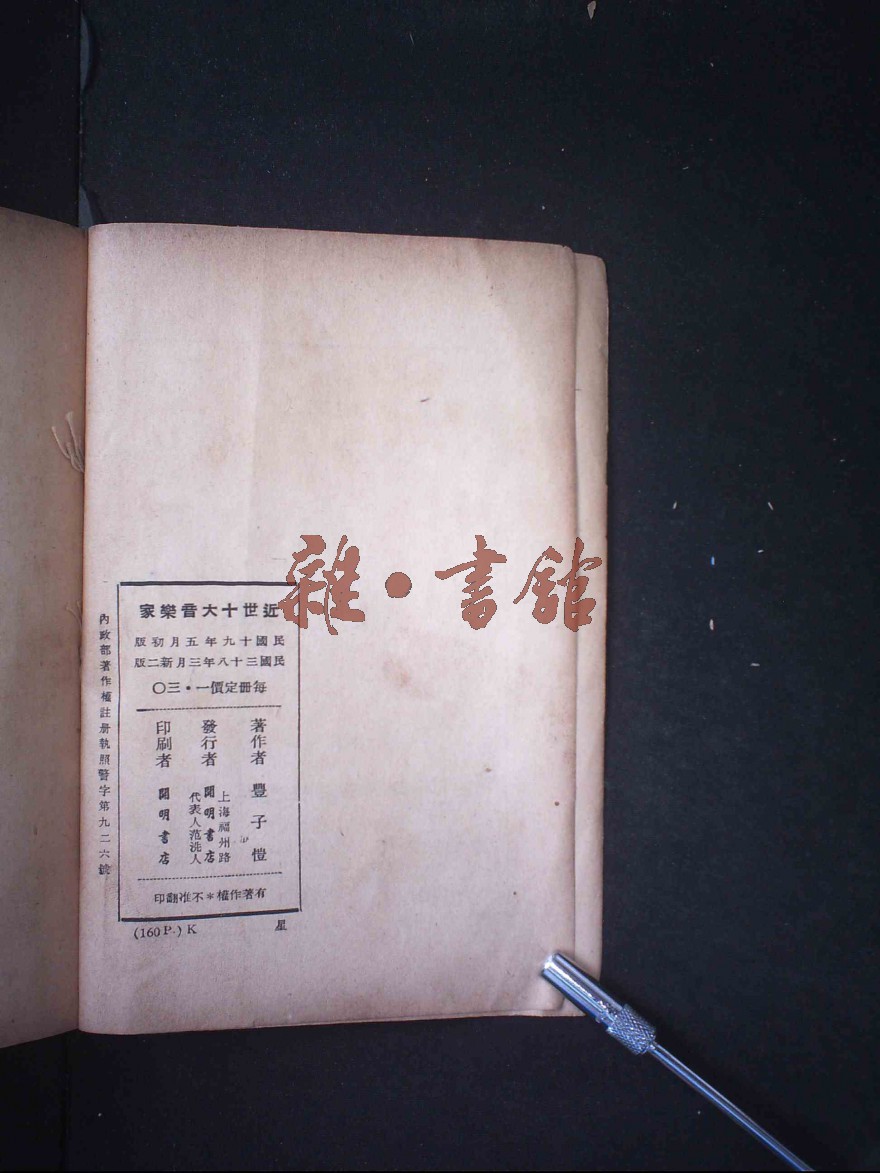 近世十大音樂家
民國十九年五月初版
民國三十八年三月新二版
每冊定價一·三〇
著作者 豐子愷
發行者 上海福州路
開明書店
代表人范洗人
印刷者 開明書店
有著作權＊不准翻印
內政部著作權註册執照警字第九二六號
(160P.) K 星
雜·書館